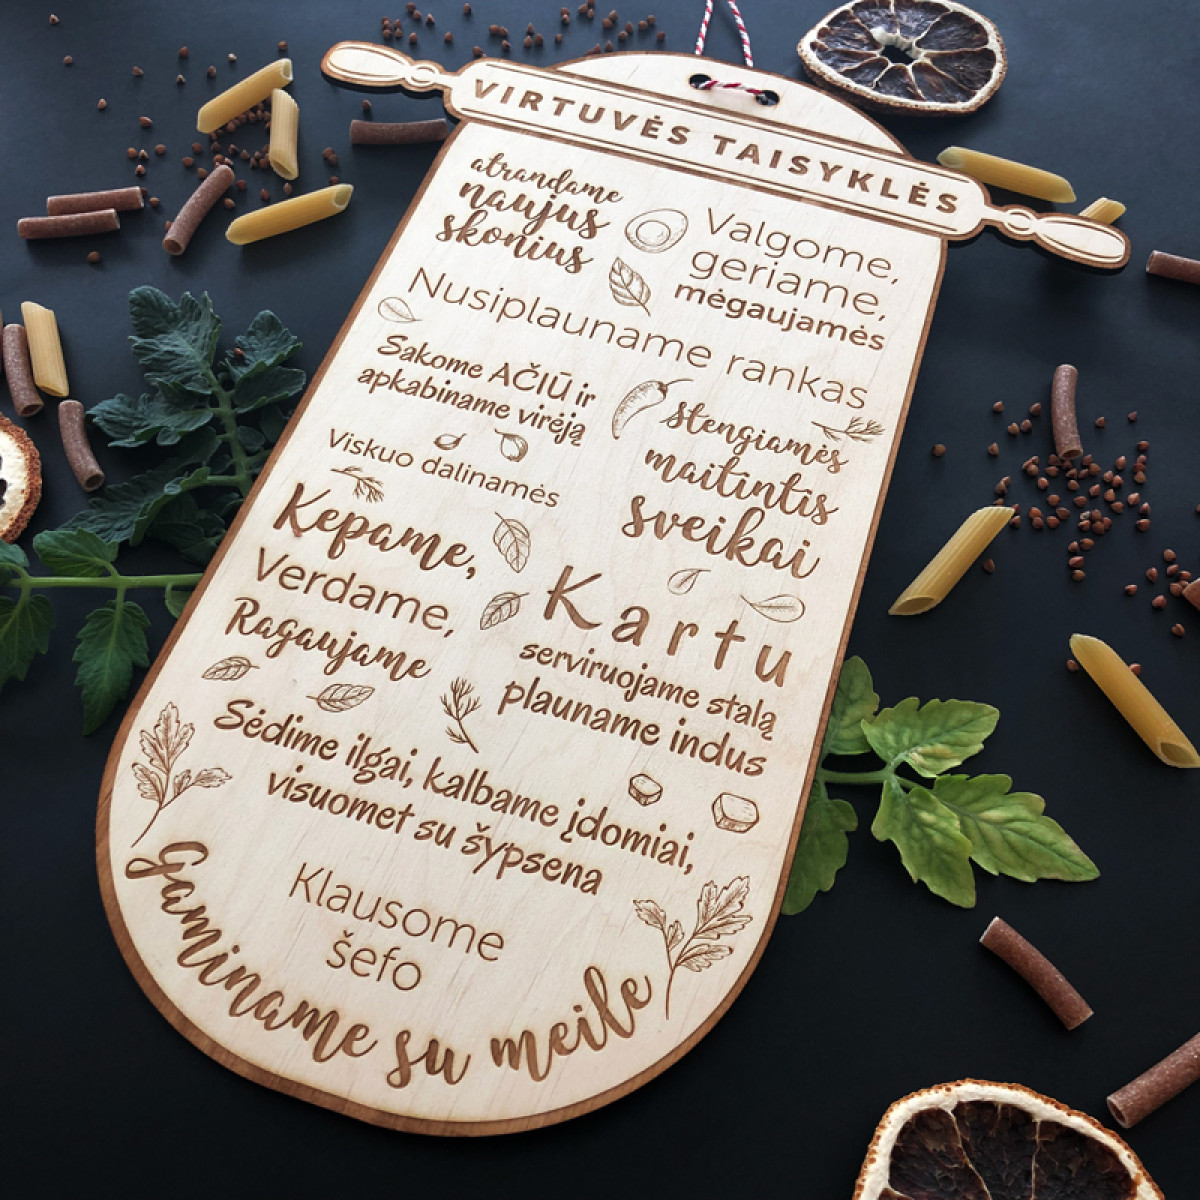 VIRTUVĖS TAISYKLĖS
atrandame
naujus
skonius
Valgome,
geriame,
mėgaujamės
Nusiplauname rankas
Sakome AČIŪ ir
apkabiname virėją
stengiamės
maitintis
sveikai
Viskuo dalinamės
Kepame,
Verdame,
Ragaujame
Kartu
serviruojame stalą
plauname indus
Sėdime ilgai, kalbame įdomiai,
visuomet su šypsena
Klausome
šefo
Gaminame su meile